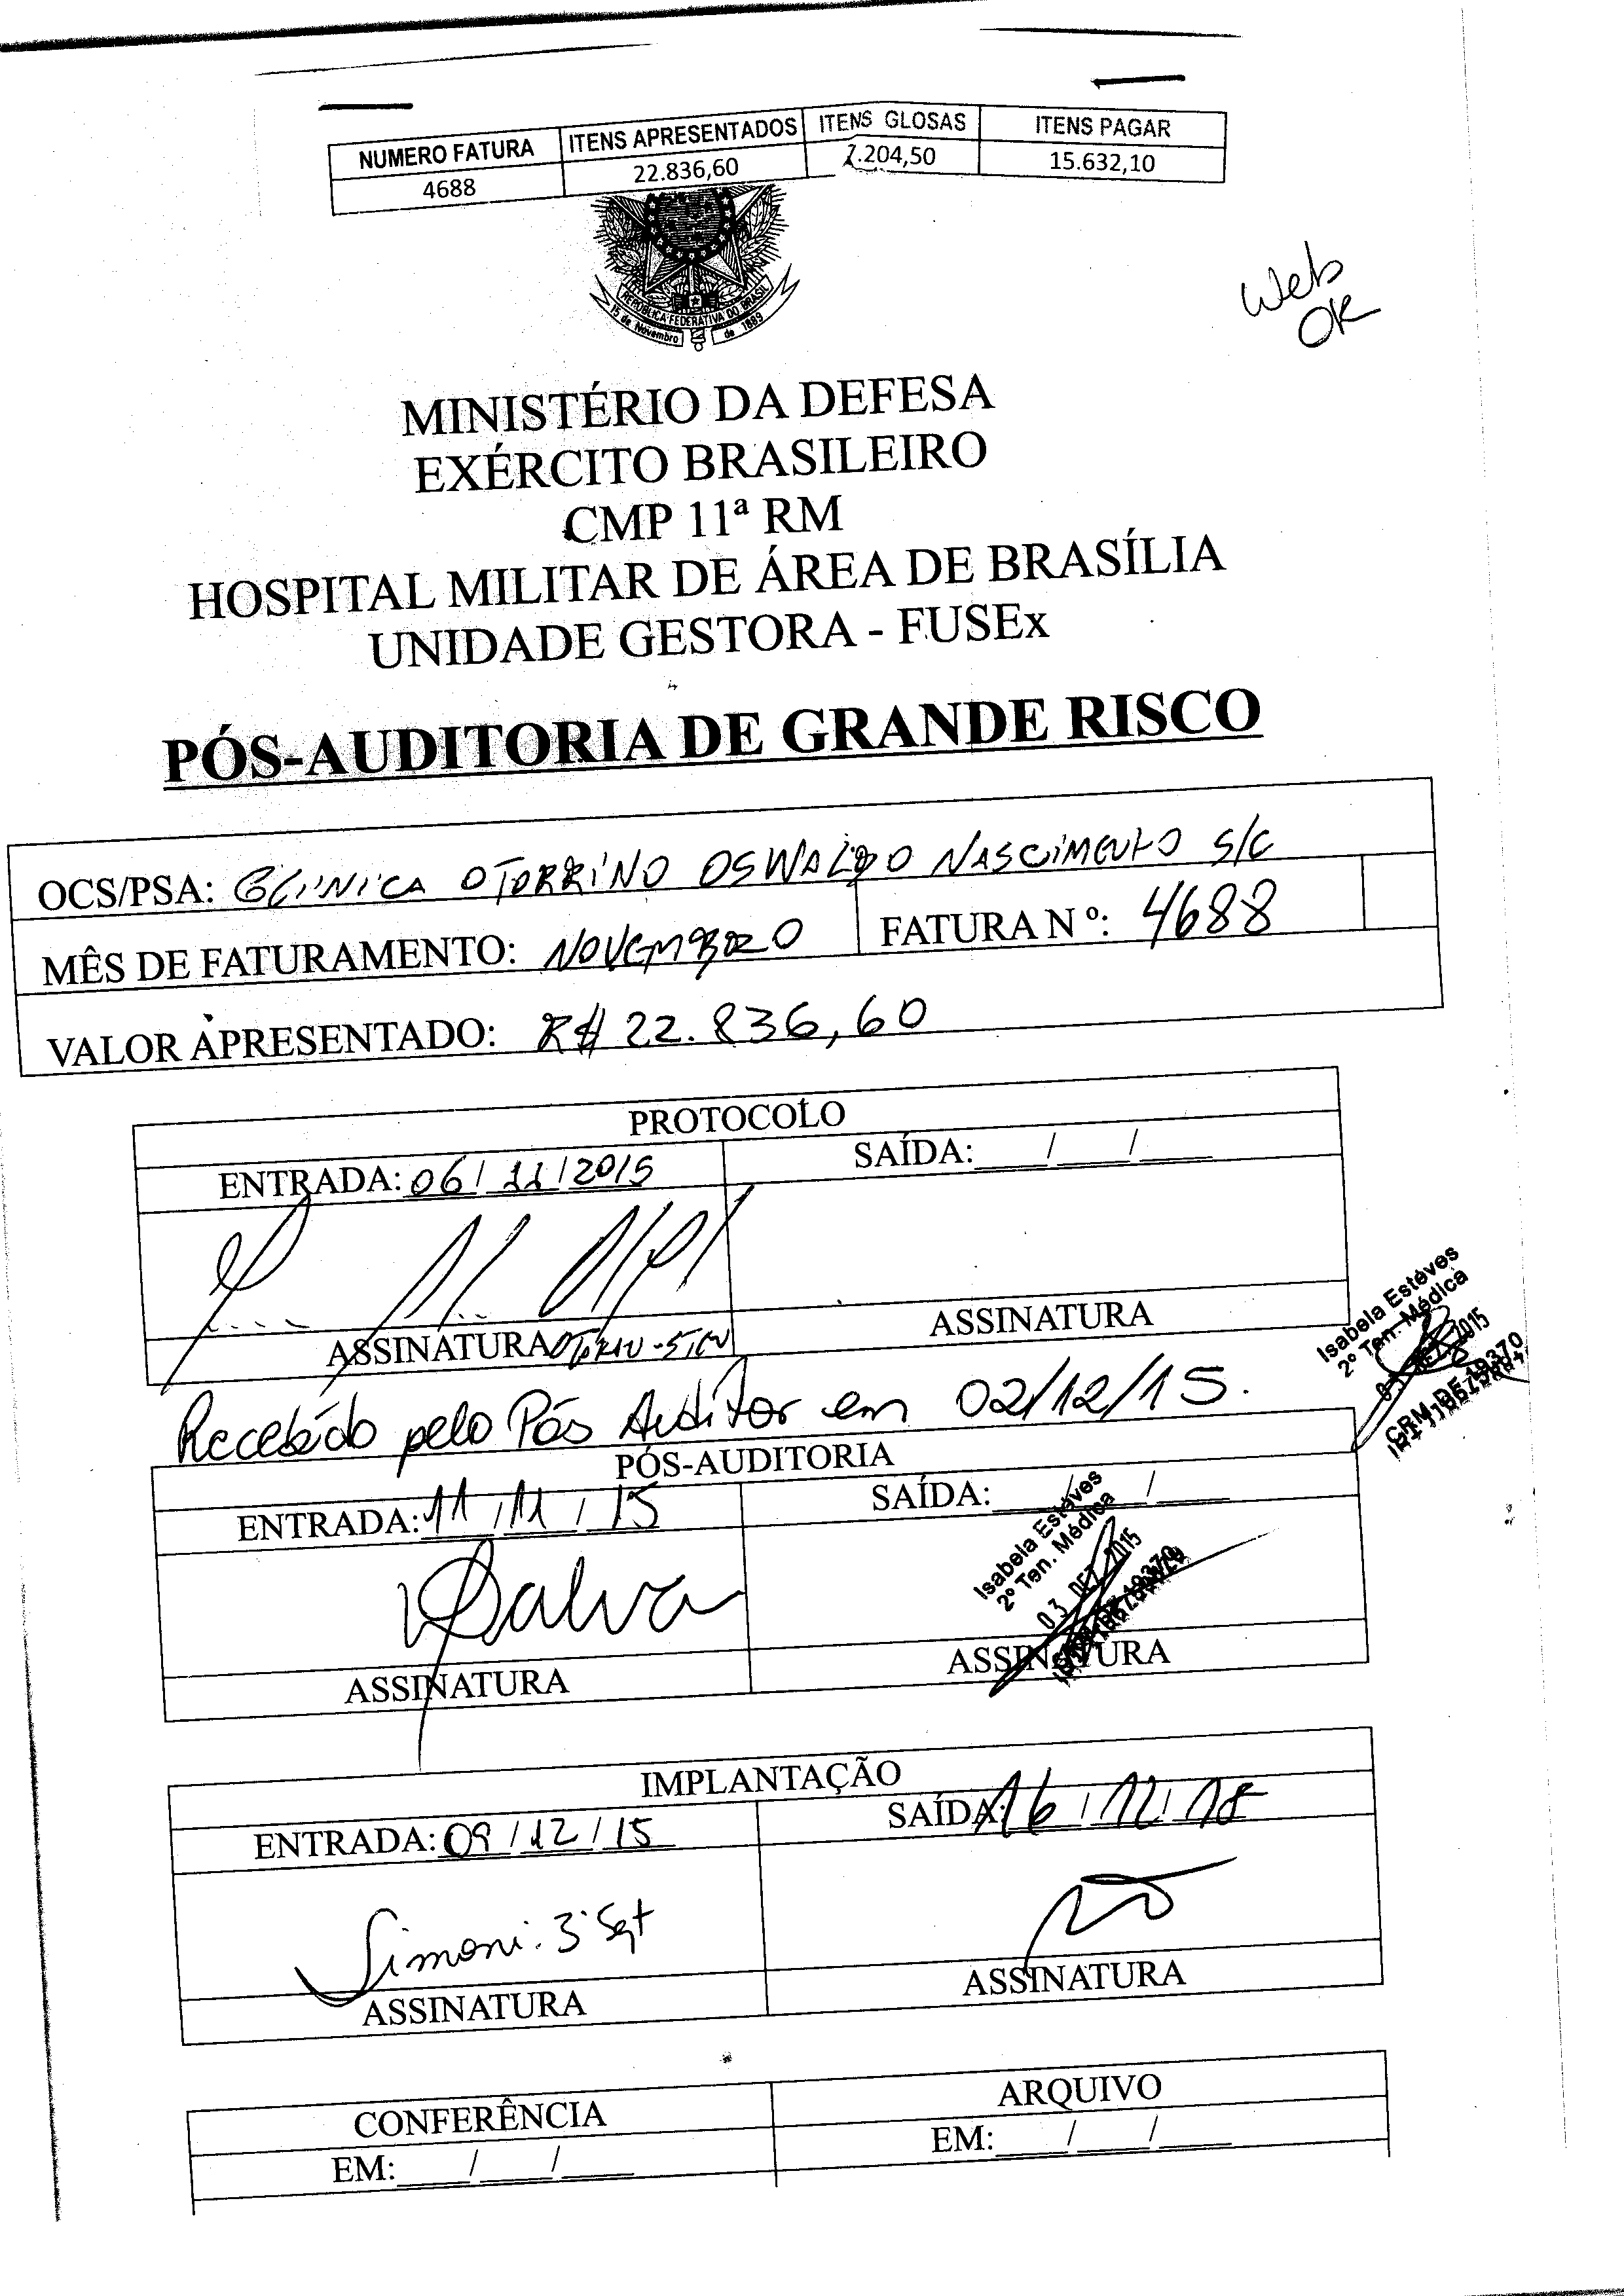 NUMERO FATURA ITENS APRESENTADOS ITENS GLOSAS ITENS PAGAR
4688 22.836,60 7.204,50 15.632,10
REPÚBLICA FEDERATIVA DO BRASIL
15 de Novembro de 1889
Web
OK
MINISTÉRIO DA DEFESA
EXÉRCITO BRASILEIRO
CMP 11ª RM
HOSPITAL MILITAR DE ÁREA DE BRASÍLIA
UNIDADE GESTORA - FUSEx
PÓS-AUDITORIA DE GRANDE RISCO
OCS/PSA: CLINICA OTORRINO OSWALDO NASCIMENTO S/C
MÊS DE FATURAMENTO: NOVEMBRO FATURA N º: 4688
VALOR APRESENTADO: R$ 22.836,60
PROTOCOLO
ENTRADA: 06/11/2015 SAÍDA: ___/___/___
ASSINATURA ASSINATURA
Isabela Estéves
2º Ten. Médica
DEZ 2015
CRM-DF 19370
Recebido pelo Pós Auditor em 02/12/15.
PÓS-AUDITORIA
ENTRADA: 11/11/15 SAÍDA: ___/___/___
Isabela Estéves
2º Ten. Médica
03 DEZ 2015
19370
Dalva
ASSINATURA ASSINATURA
IMPLANTAÇÃO
ENTRADA: 09/12/15 SAÍDA: 16/12/18
Simoni. 3º Sgt
ASSINATURA ASSINATURA
CONFERÊNCIA ARQUIVO
EM: ___/___/___ EM: ___/___/___